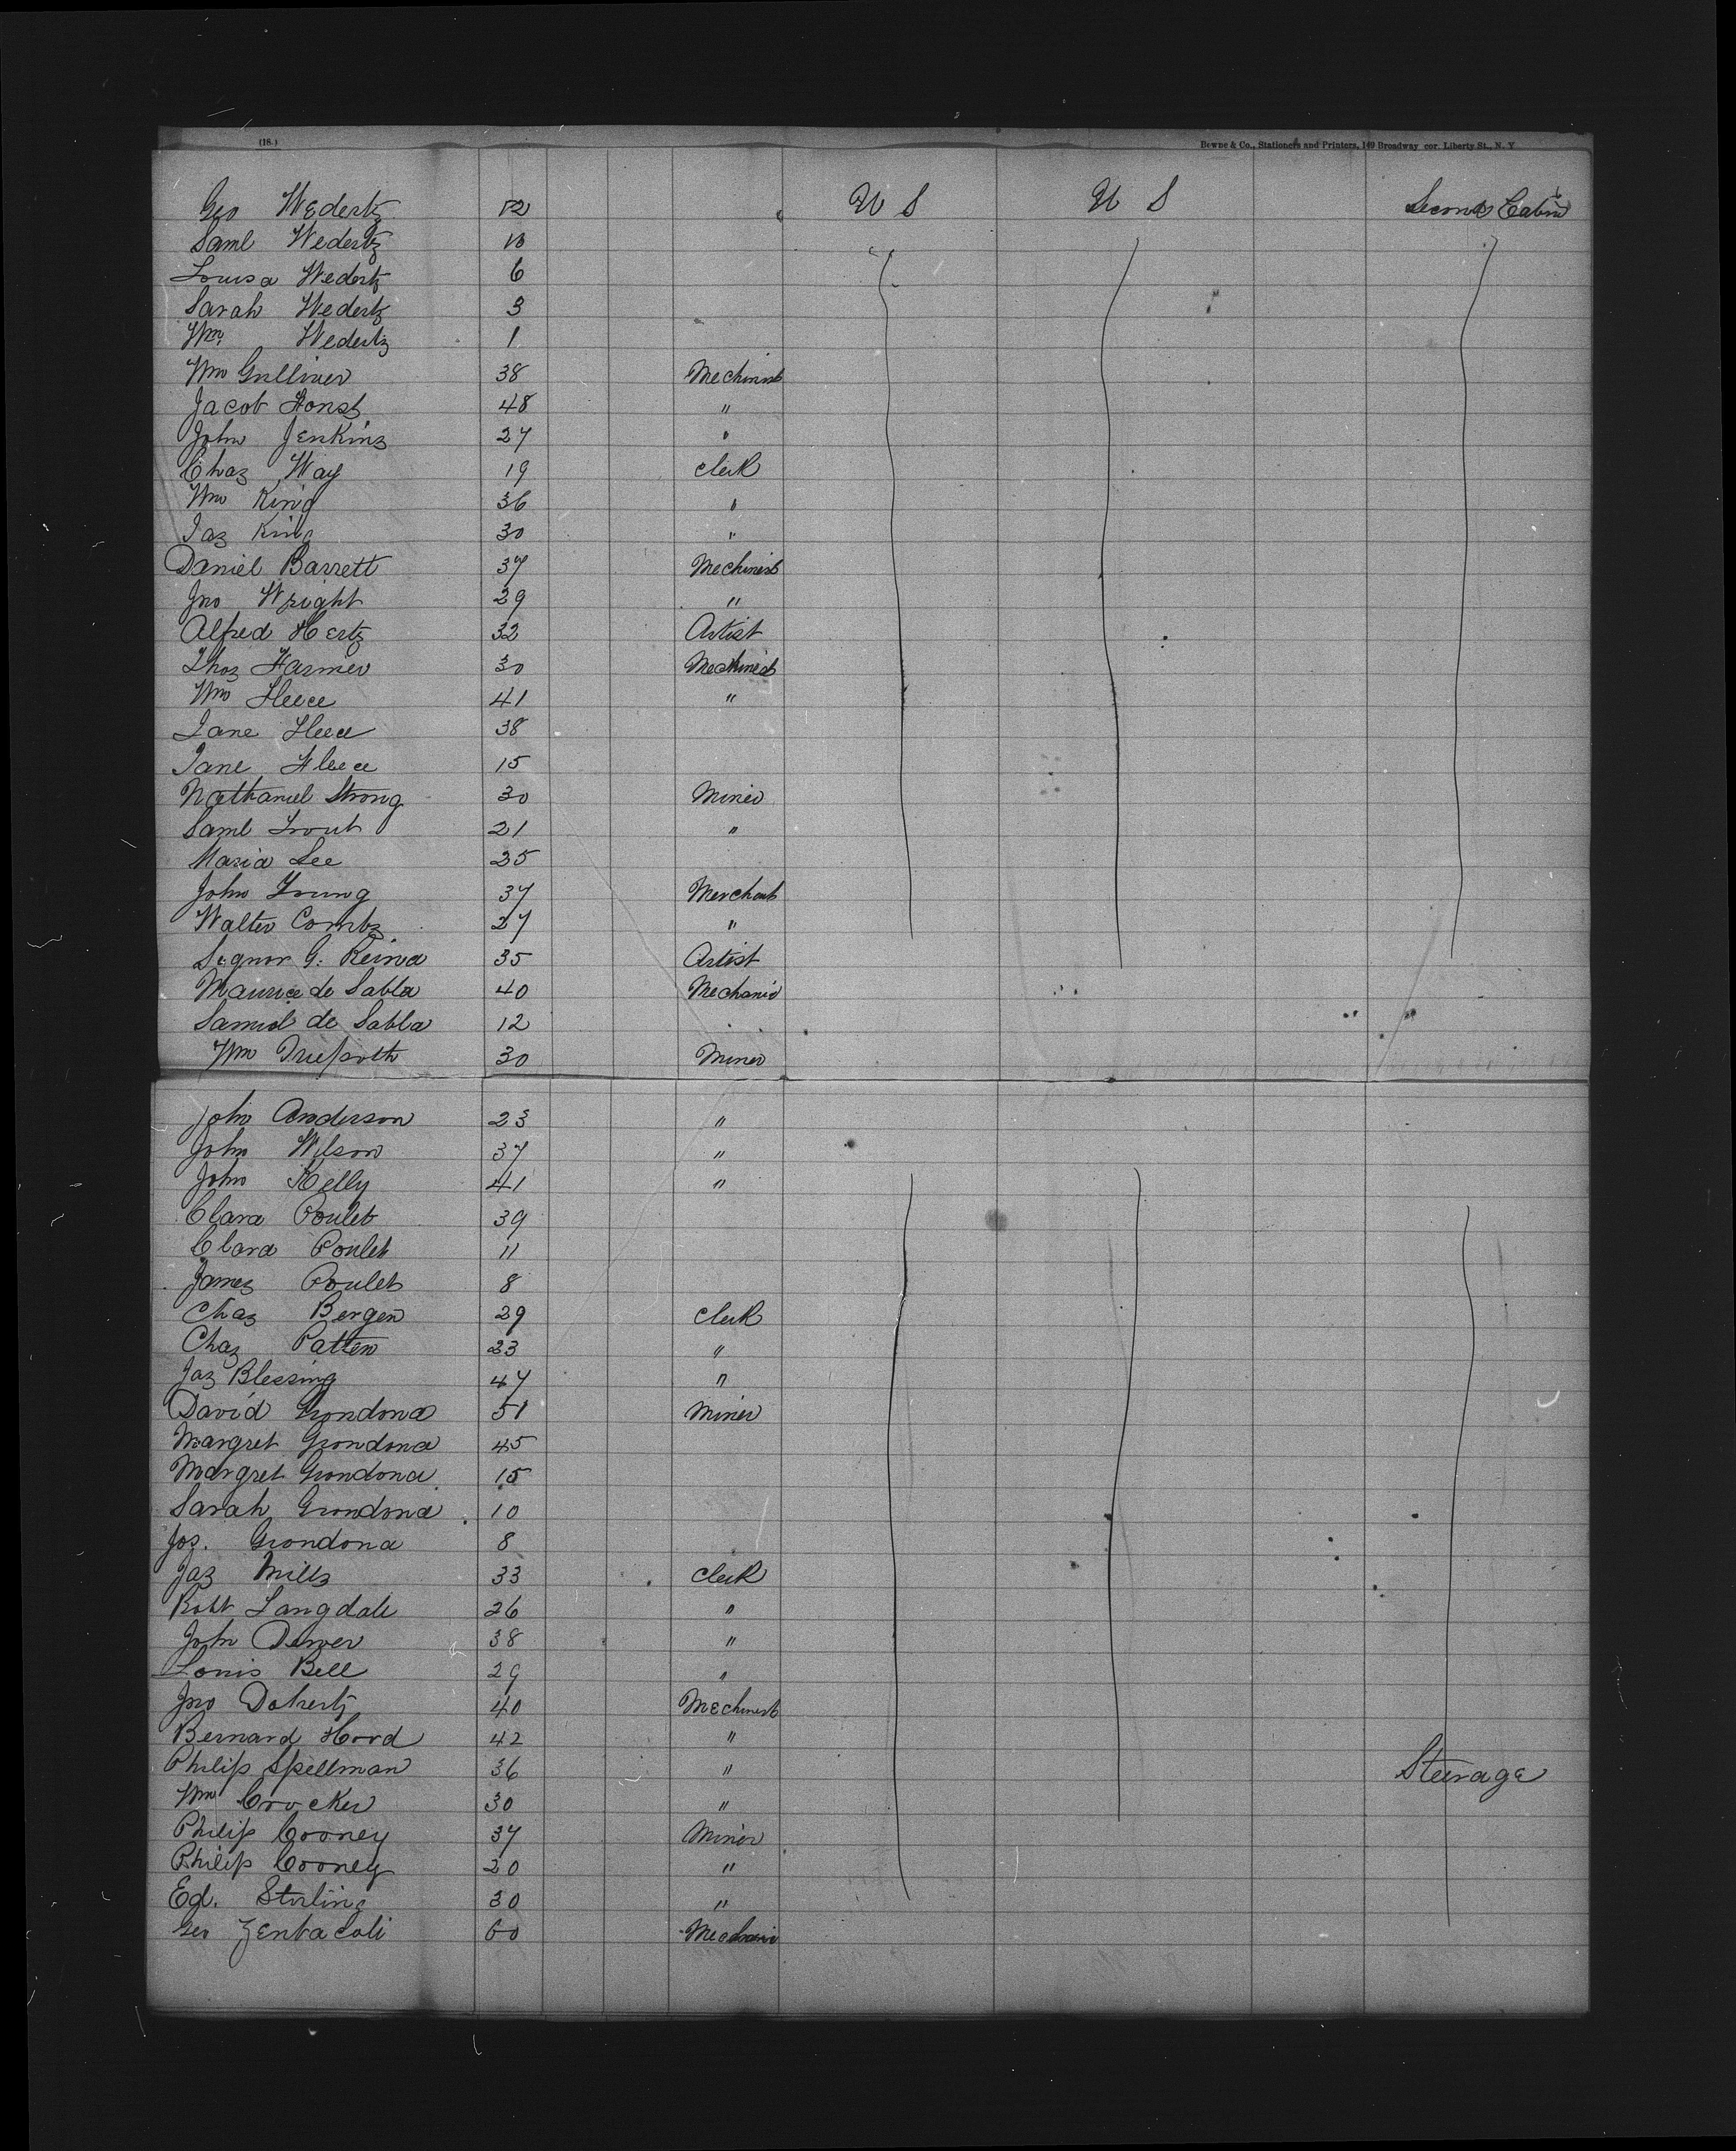 (18.) Bowne & Co., Stationers and Printers, 149 Broadway cor. Liberty St., N. Y
Geo Wedertz 12 U S U S Second Cabin
Saml Wedertz
Louisa Wedertz 6
Sarah Wedertz 3
Wm Wedertz 1
Wm Gulliver 38 Mechinist
Jacob 48 "
John Jenkins 27 "
Chas Way 19 Clerk
Wm King 36 "
Jas King 30 "
Daniel Barrett 37 Mechinist
Jno Wright 29 "
Alfred Hertz 32 Artist
Thos Harmer 30 Mechinist
Wm Fleece 41 "
Jane Fleece 38
Jane Fleece 15
Nathaniel Strong 30 Miner
Saml Trout 21 "
Maria Lee 25
John Young 37 Merchant
Walter Combs 27 "
Signor G. Reina 35 Artist
Maurice de Sabla 40 Mechanic
Samiel de Sabla 12
Wm 30 Miner
John Anderson 23 "
John Wilson 37 "
John Kelly 41 "
Clara Poulet 39
Clara Poulet 11
James Poulet 8
Chas Bergen 29 Clerk
Chas Patten 23 "
Jas Blessing 47 "
David Grondona 51 Miner
Margret Grondona 45
Margret Grondona 15
Sarah Grondona 10
Jos. Grondona 8
Jas Mills 33 Clerk
Robt Langdale 26 "
John 38 "
Louis Bell 29 "
Jno Doherty 40 Mechinist
Bernard Hord 42 "
Philip Spellman 36 " Steerage
Wm Crocker 30 "
Philip Cooney 37 Miner
Philip Cooney 20 "
Ed. Sterling 30 "
Geo 60 Mechanic